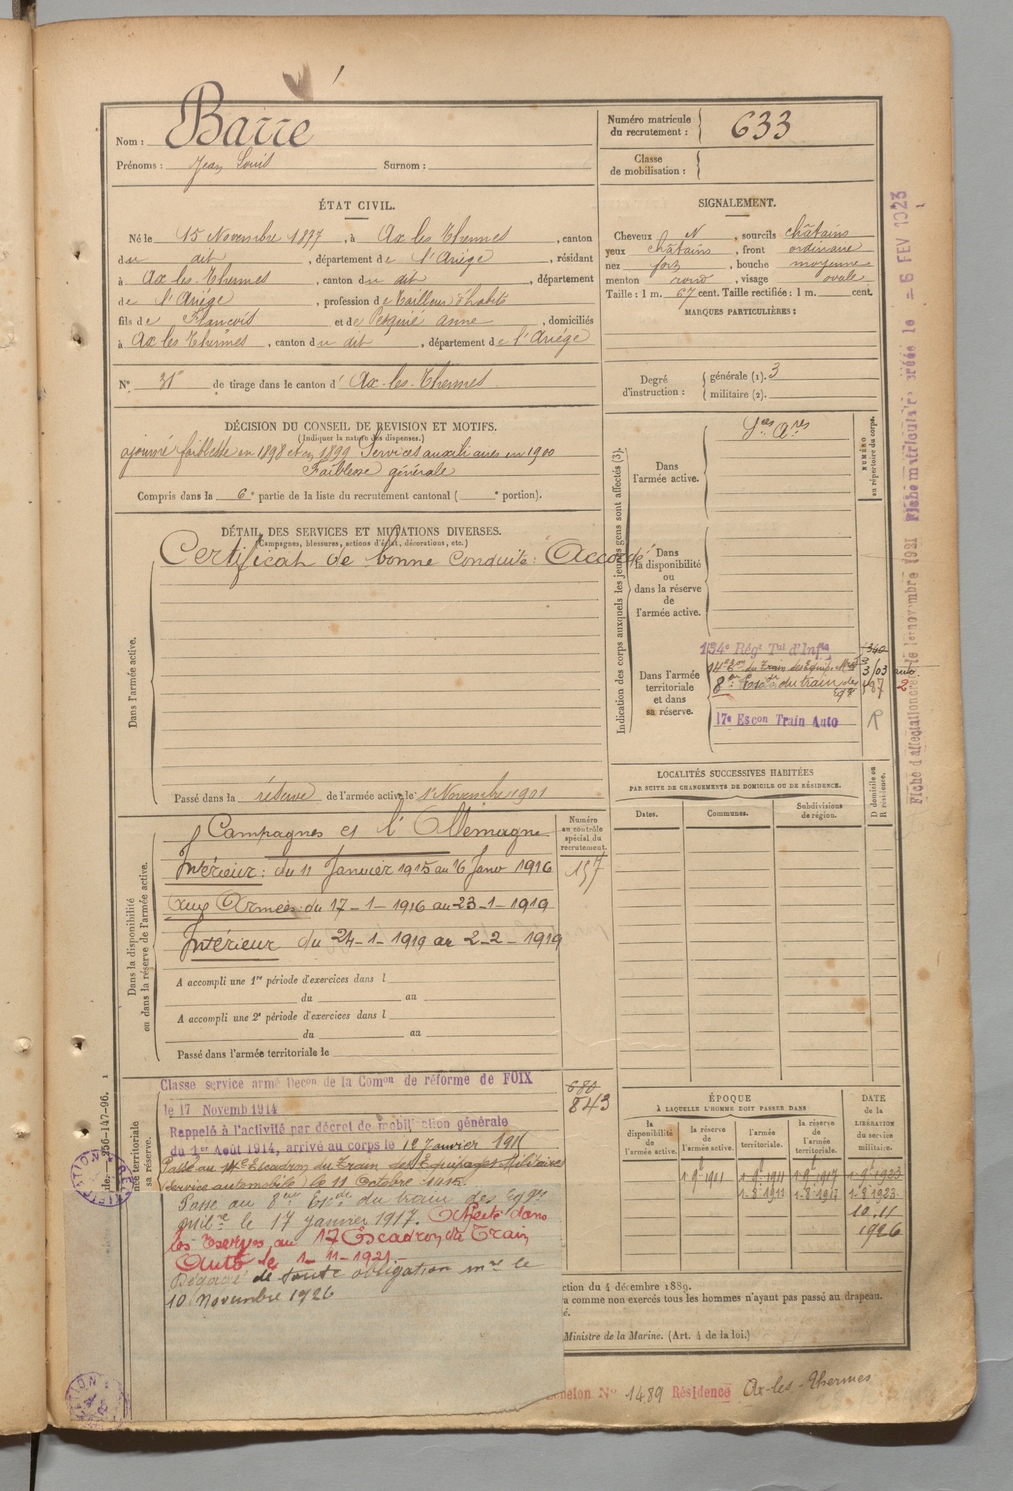 Nom : Barre
Prénoms : Jean Louis Surnom :
Numéro matricule du recrutement : 633
Classe de mobilisation :
ÉTAT CIVIL.
Né le 15 Novembre 1877, à Ax les Thermes, canton
du dit, département de l'Ariège, résidant
à Ax les Thermes, canton du dit, département
de l'Ariège, profession de tailleur d'habits
fils de François et de anne, domiciliés
à Ax les Thermes, canton du dit, département de l'Ariège
N° 31 de tirage dans le canton d' Ax-les-Thermes.
SIGNALEMENT.
Cheveux N, sourcils châtains
yeux châtains, front ordinaire
nez fort, bouche moyenne
menton rond, visage ovale
Taille : 1 m. 67 cent. Taille rectifiée : 1 m. cent.
MARQUES PARTICULIÈRES :
Degré d'instruction : générale (1). 3
militaire (2).
DÉCISION DU CONSEIL DE REVISION ET MOTIFS.
(Indiquer la nature des dispenses.)
ajourné faiblesse en 1898 et en 1899 Services auxiliaires en 1900
Faiblesse générale
Compris dans la 6e partie de la liste du recrutement cantonal ( e portion).
DÉTAIL DES SERVICES ET MUTATIONS DIVERSES.
(Campagnes, blessures, actions d'éclat, décorations, etc.)
Certificat de bonne conduite : "Accordé"
Dans l'armée active.
Passé dans la réserve de l'armée active le 1er Novembre 1901
Indication des corps auxquels les jeunes gens sont affectés (3).
NUMÉRO au répertoire du corps.
Dans l'armée active.
Dans la disponibilité ou dans la réserve de l'armée active.
Dans l'armée territoriale et dans sa réserve.
134e Régt Tal d'Infie
14e Eon du Train des Equip. Mres
8e Escon du train des Eqes
17e Escon Train Auto
R
LOCALITÉS SUCCESSIVES HABITÉES
PAR SUITE DE CHANGEMENTS DE DOMICILE OU DE RÉSIDENCE.
Dates. Communes. Subdivisions de région. D domicile ou R résidence.
Dans la disponibilité ou dans la réserve de l'armée active.
Numéro au contrôle spécial du recrutement.
157
Campagnes et l'Allemagne
Intérieur : du 11 Janvier 1915 au 16 Janv 1916
aux Armées : du 17-1-1916 au 23-1-1919
Intérieur du 24-1-1919 au 2-2-1919
A accompli une 1re période d'exercices dans l
du au
A accompli une 2e période d'exercices dans l
du au
Passé dans l'armée territoriale le
680
843
Classe service armé Decon de la Comon de réforme de FOIX
le 17 Novemb 1914
Rappelé à l'activité par décret de mobilisation générale
du 1er Août 1914, arrivé au corps le 12 Janvier 1915
Passé au 14e Escadron du Train des Equipages Militaires
(service automobile) le 11 Octobre 1915.
Passé au 8me Escon du train des Eqges
Milres le 17 janvier 1917. Affecté dans
les réserves au 17 Escadron du Train
Auto le 1-11-1921.
Dégagé de toute obligation mre le
10 Novembre 1926
ÉPOQUE
À LAQUELLE L'HOMME DOIT PASSER DANS :
la disponibilité de l'armée active.
la réserve de l'armée active.
l'armée territoriale.
la réserve de l'armée territoriale.
DATE de la LIBÉRATION du service militaire.
1-9-1911 1-9-1911 1-9-1917 1-9-1923
1-8-1911 1-8-1917 1-8-1923.
10.11
1926
ction du 4 décembre 1889.
a comme non exercés tous les hommes n'ayant pas passé au drapeau.
Ministre de la Marine. (Art. 4 de la loi.)
N° 1489 Résidence Ax-les-Thermes
Fiche d'affectation créée le 1er novembre 1921 Fiche matriculaire créée le = 6 FEV 1923
256-147-96.